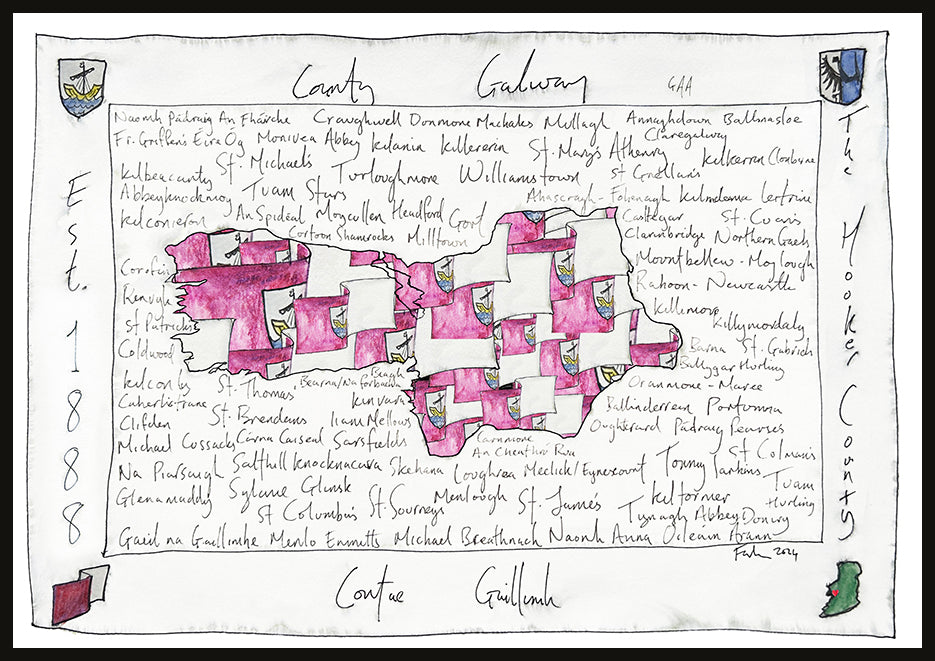 County Galway GAA
Est. 1888
The Hooker County
Naomh Pádraig An Fhairche Craughwell Donmone Machales Mullagh Annaghdown Ballinasloe
Claregalway
Fr. Griffin's Éire Óg Monivea Abbey Kilania Killererin St. Mary's Athenry Kilkerrin Clonberne
St. Michael's Turloughmore Williamstown St Grellan's
Kilbeacanty
Abbeyknockmoy Tuam Stars Ahascragh - Fohenagh Kilnadeema Leitrim
Kilconieron An Spidéal Moycullen Headford Gort Castlegar St. Cuan's
Cortoon Shamrocks Milltown Clarinbridge Northern Gaels
Mountbellew - Moylough
Corofin
Rahoon - Newcastle
Renvyle
Killimore
St Patricks
Killymordaly
Coldwood
Barna St. Gabriels
Ballygar Hurling
Beagh
Kilconly St. Thomas Bearna/Na Forbacha Oranmore - Maree
Caherlistrane Kinvara
Ballinderreen Portumna
Clifden St. Brendans Liam Mellows
Oughterard Pádraig Pearses
Michael Cussacks Carna Caiseal Sarsfields Carnmore
An Cheathrú Rua
St Colmans
Na Piarsaigh Salthill Knocknacarra Skehana Loughrea Meelick/Eyrecourt Tommy Larkins
Tuam
Hurling
Glenamaddy Sylane Glinsk Menlough St. James's Kiltormer
St Columba's St. Sourneys Tynagh Abbey Doniry
Gaeil na Gaillimhe Menlo Emmetts Michael Breathnach Naomh Anna Oileáin Árann
2024
Contae Gaillimh